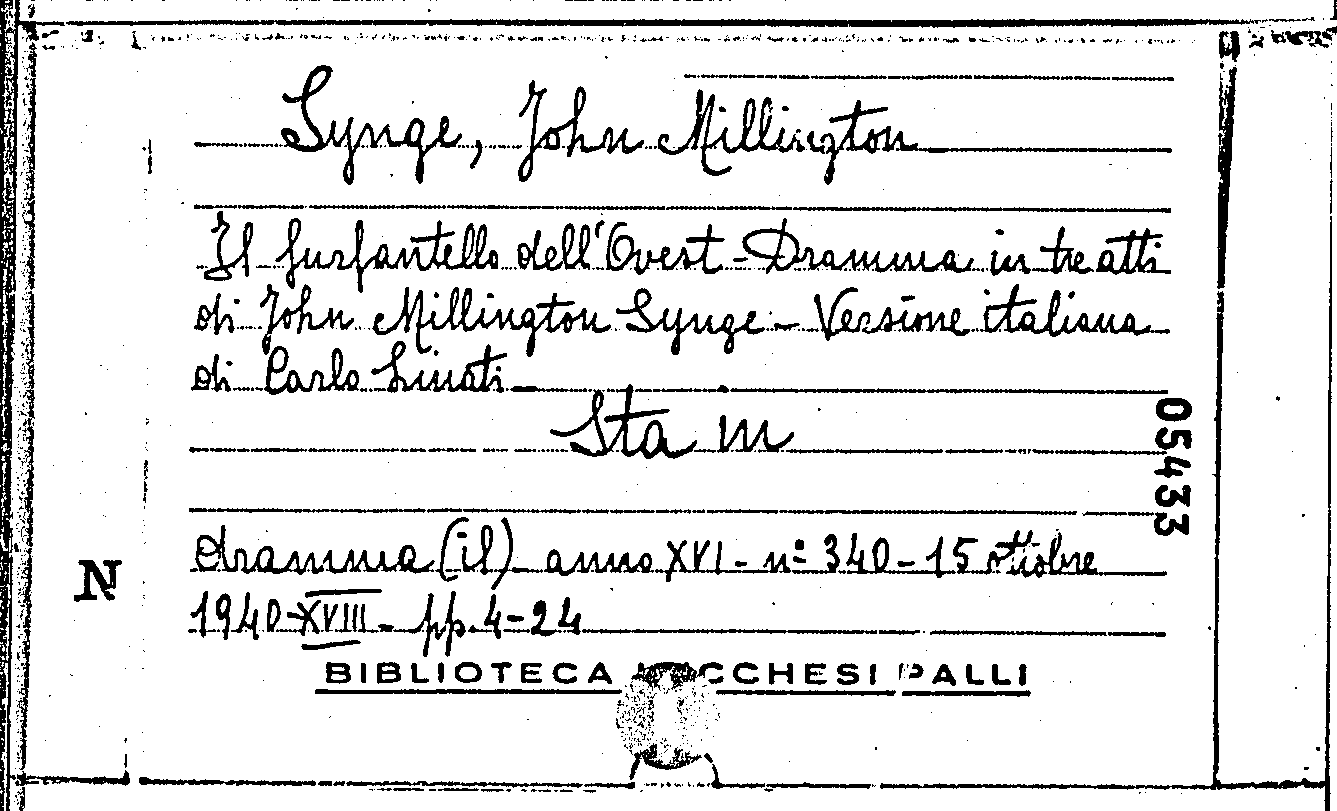 Synge, John Millington
Il furfantello dell'Ovest - Dramma in tre atti
di John Millington Synge - Versione italiana
di Carlo Linati -
Sta m
05433
dramma (il) - anno XVI - n° 340 - 15 ottobre
N
1940-XVIII - pp. 4-24
BIBLIOTECA CCHESI PALLI